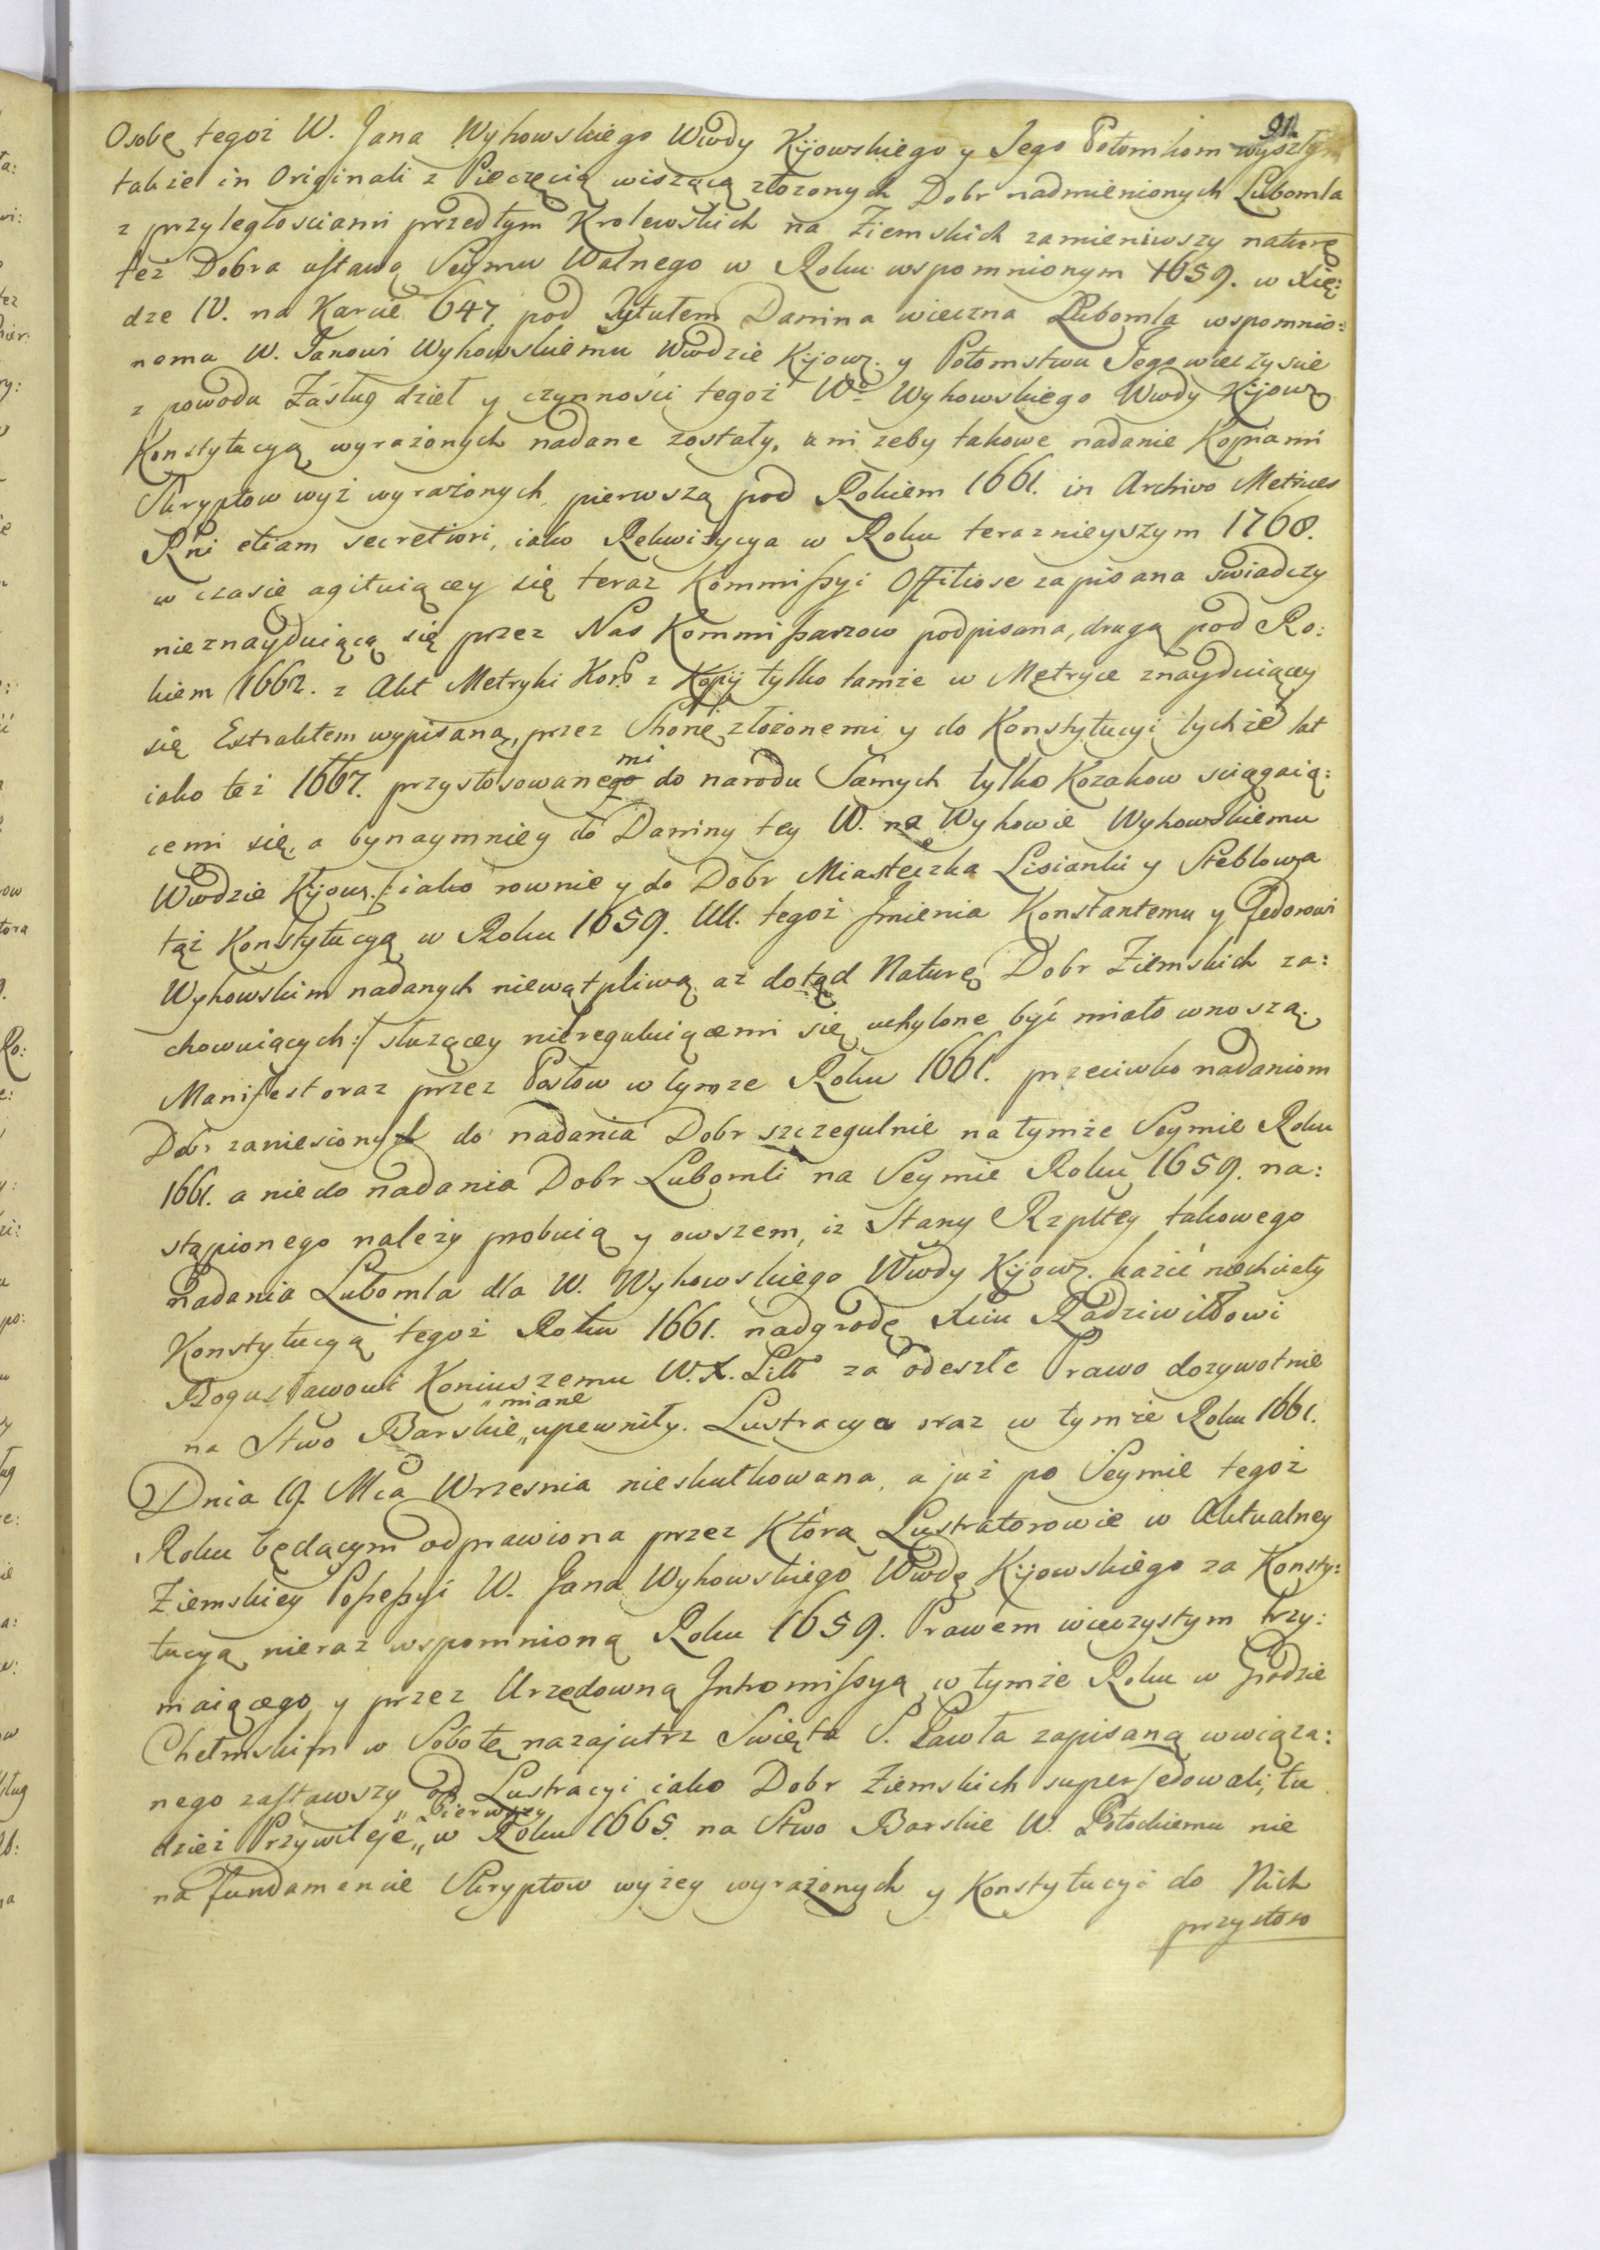 91.
Osobę tegoż W. Jana Wyhowskiego Wwdy Kijowskiego y Jego Potomkom wyszłym
także in Originali z Pieczęcią wiszącą złożonych Dobr nadmienionych Lubomla
z przyległosciami przedtym Krolewskich na Ziemskich zamieniwszy naturę
też Dobra ustawą Seymu Walnego w Roku wspomnionym 1659. w Xię:
dze IV. na Karcie 647 pod Tytułem Danina wieczna Lubomla wspomnio:
nemu W. Janowi Wyhowskiemu Wwdzie Kijowz. y Potomstwu Jego wieczyscie
z powodu Zasług dzieł y czynności tegoż Wo Wyhowskiego Wwdy Kijowz
Konstytucyą wyrażonych nadane zostały, ani żeby takowe nadanie Kopiami
Skryptow wyż wyrażonych pierwszą pod Rokiem 1661. in Archivo Metrices
Rni etiam secretiori, iako Rekwizycya w Roku teraznieyszym 1768.
w czasie agituiącey się teraz Kommissyi Officiose zapisana swiadczy
nieznayduiącą się przez Nas Kommissarzow podpisana, drugą pod Ro:
kiem 1662. z Akt Metryki Kor. z Kopij tylko tamże w Metryce znayduiącey
się Extraktem wypisaną, przez Stronę złożonemi y do Konstytucyi tychże lat
iako też 1667. przystosowanego mi do narodu Samych tylko Kozakow sciągaią:
cemi się, a bynaymniey do Daniny tey W. na Wyhowie Wyhowskiemu
Wwdzie Kijowz. /: iako rownie y do Dobr Miasteczka Lisianki y Steblowa
tąż Konstytucyą w Roku 1659. UU. tegoż Jmienia Konstantemu y Fedorowi
Wyhowskim nadanych niewątpliwą aż dotąd Naturę Dobr Ziemskich za:
chowuiących :/ służącey nieregulniącemi się uchylone być miało wnoszą.
Manifest oraz przez Posłow w tymże Roku 1661. przeciwko nadaniom
Dobr zaniesionych do nadania Dobr szczegulnie na tymże Seymie Roku
1661. a niedo nadania Dobr Lubomli na Seymie Roku 1659. na:
stąpionego należy probuią y owszem, iż Stany Rzpltey takowego
nadania Lubomla dla W. Wyhowskiego Wwdy Kijowz. kazić niechciały
Konstytucyą tegoż Roku 1661. nadgrodę Xciu Radziwiłłowi
Bogusławowi Koniuszemu W.X. Litt za odeszłe Prawo dożywotnie
na Stwo Barskie „miane„ upewniły. Lustracya oraz w tymże Roku 1661.
Dnia 19. Mca Wrzesnia nieskutkowana, a już po Seymie tegoż
Roku będącym odprawiona przez Którą Lustratorowie w Aktualney
Ziemskiey Possessyi W. Jana Wyhowskiego Wwdę Kijowskiego za Konsty:
tucyą nieraz wspomnioną Roku 1659. Prawem wieczystym trzy:
maiącego y przez Urzędowną Intromissyą w tymże Roku w Grodzie
Chełmskim w Sobotę nazajutrz Swięta S. Pawła zapisaną wwiąza:
nego zastawszy od Lustracyi iako Dobr Ziemskich supersedowali, tu
dzież Przywileje „Pierwszy„ w Roku 1665. na Stwo Barskie W. Potockiemu nie
na fundamencie Skryptow wyżey wyrażonych y Konstytucyi do Nich
przystoso